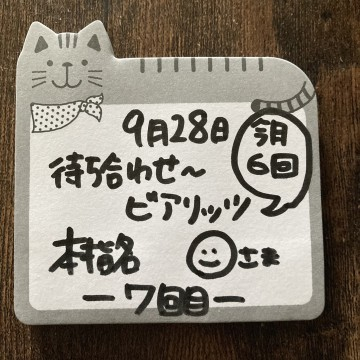 9月28日
今月
6回
待ち合わせ〜
ビアリッツ
本指名 さま
ー7回目ー